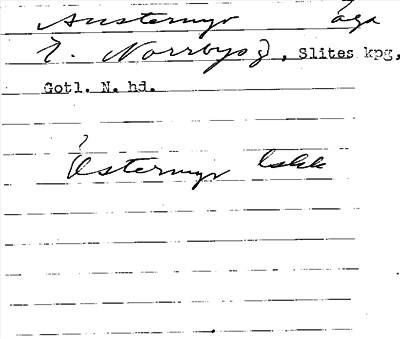 Austermyr äga
[. Norrbys], Slites kpg,
Gotl. N. hd.
?
Östermyr lskk